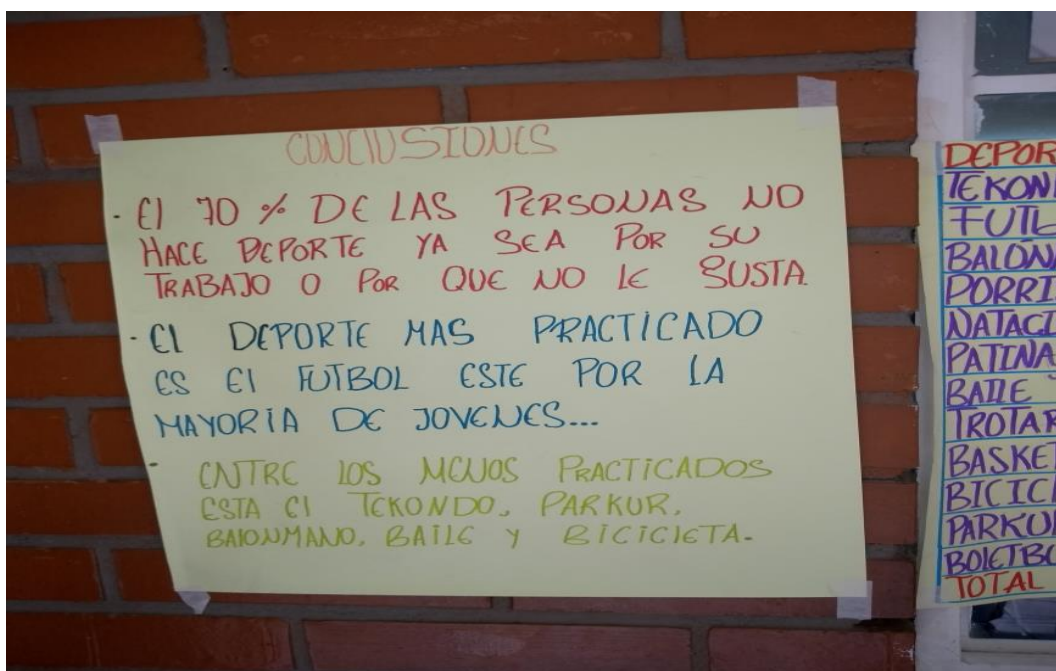 CONCLUSIONES
· El 70 % DE LAS PERSONAS NO
HACE DEPORTE YA SEA POR SU
TRABAJO O POR QUE NO LE GUSTA.
· El DEPORTE MAS PRACTICADO
ES El FUTBOL ESTE POR LA
MAYORIA DE JOVENES...
· ENTRE LOS MENOS PRACTICADOS
ESTA El TEKONDO, PARKUR,
BALONMANO, BAILE Y BICICLETA.
DEPOR
TEKON
FUTB
BALON
PORRI
NATACI
PATINA
BAILE
TROTAR
BASKET
BICICL
PARKU
BOLETBO
TOTAL